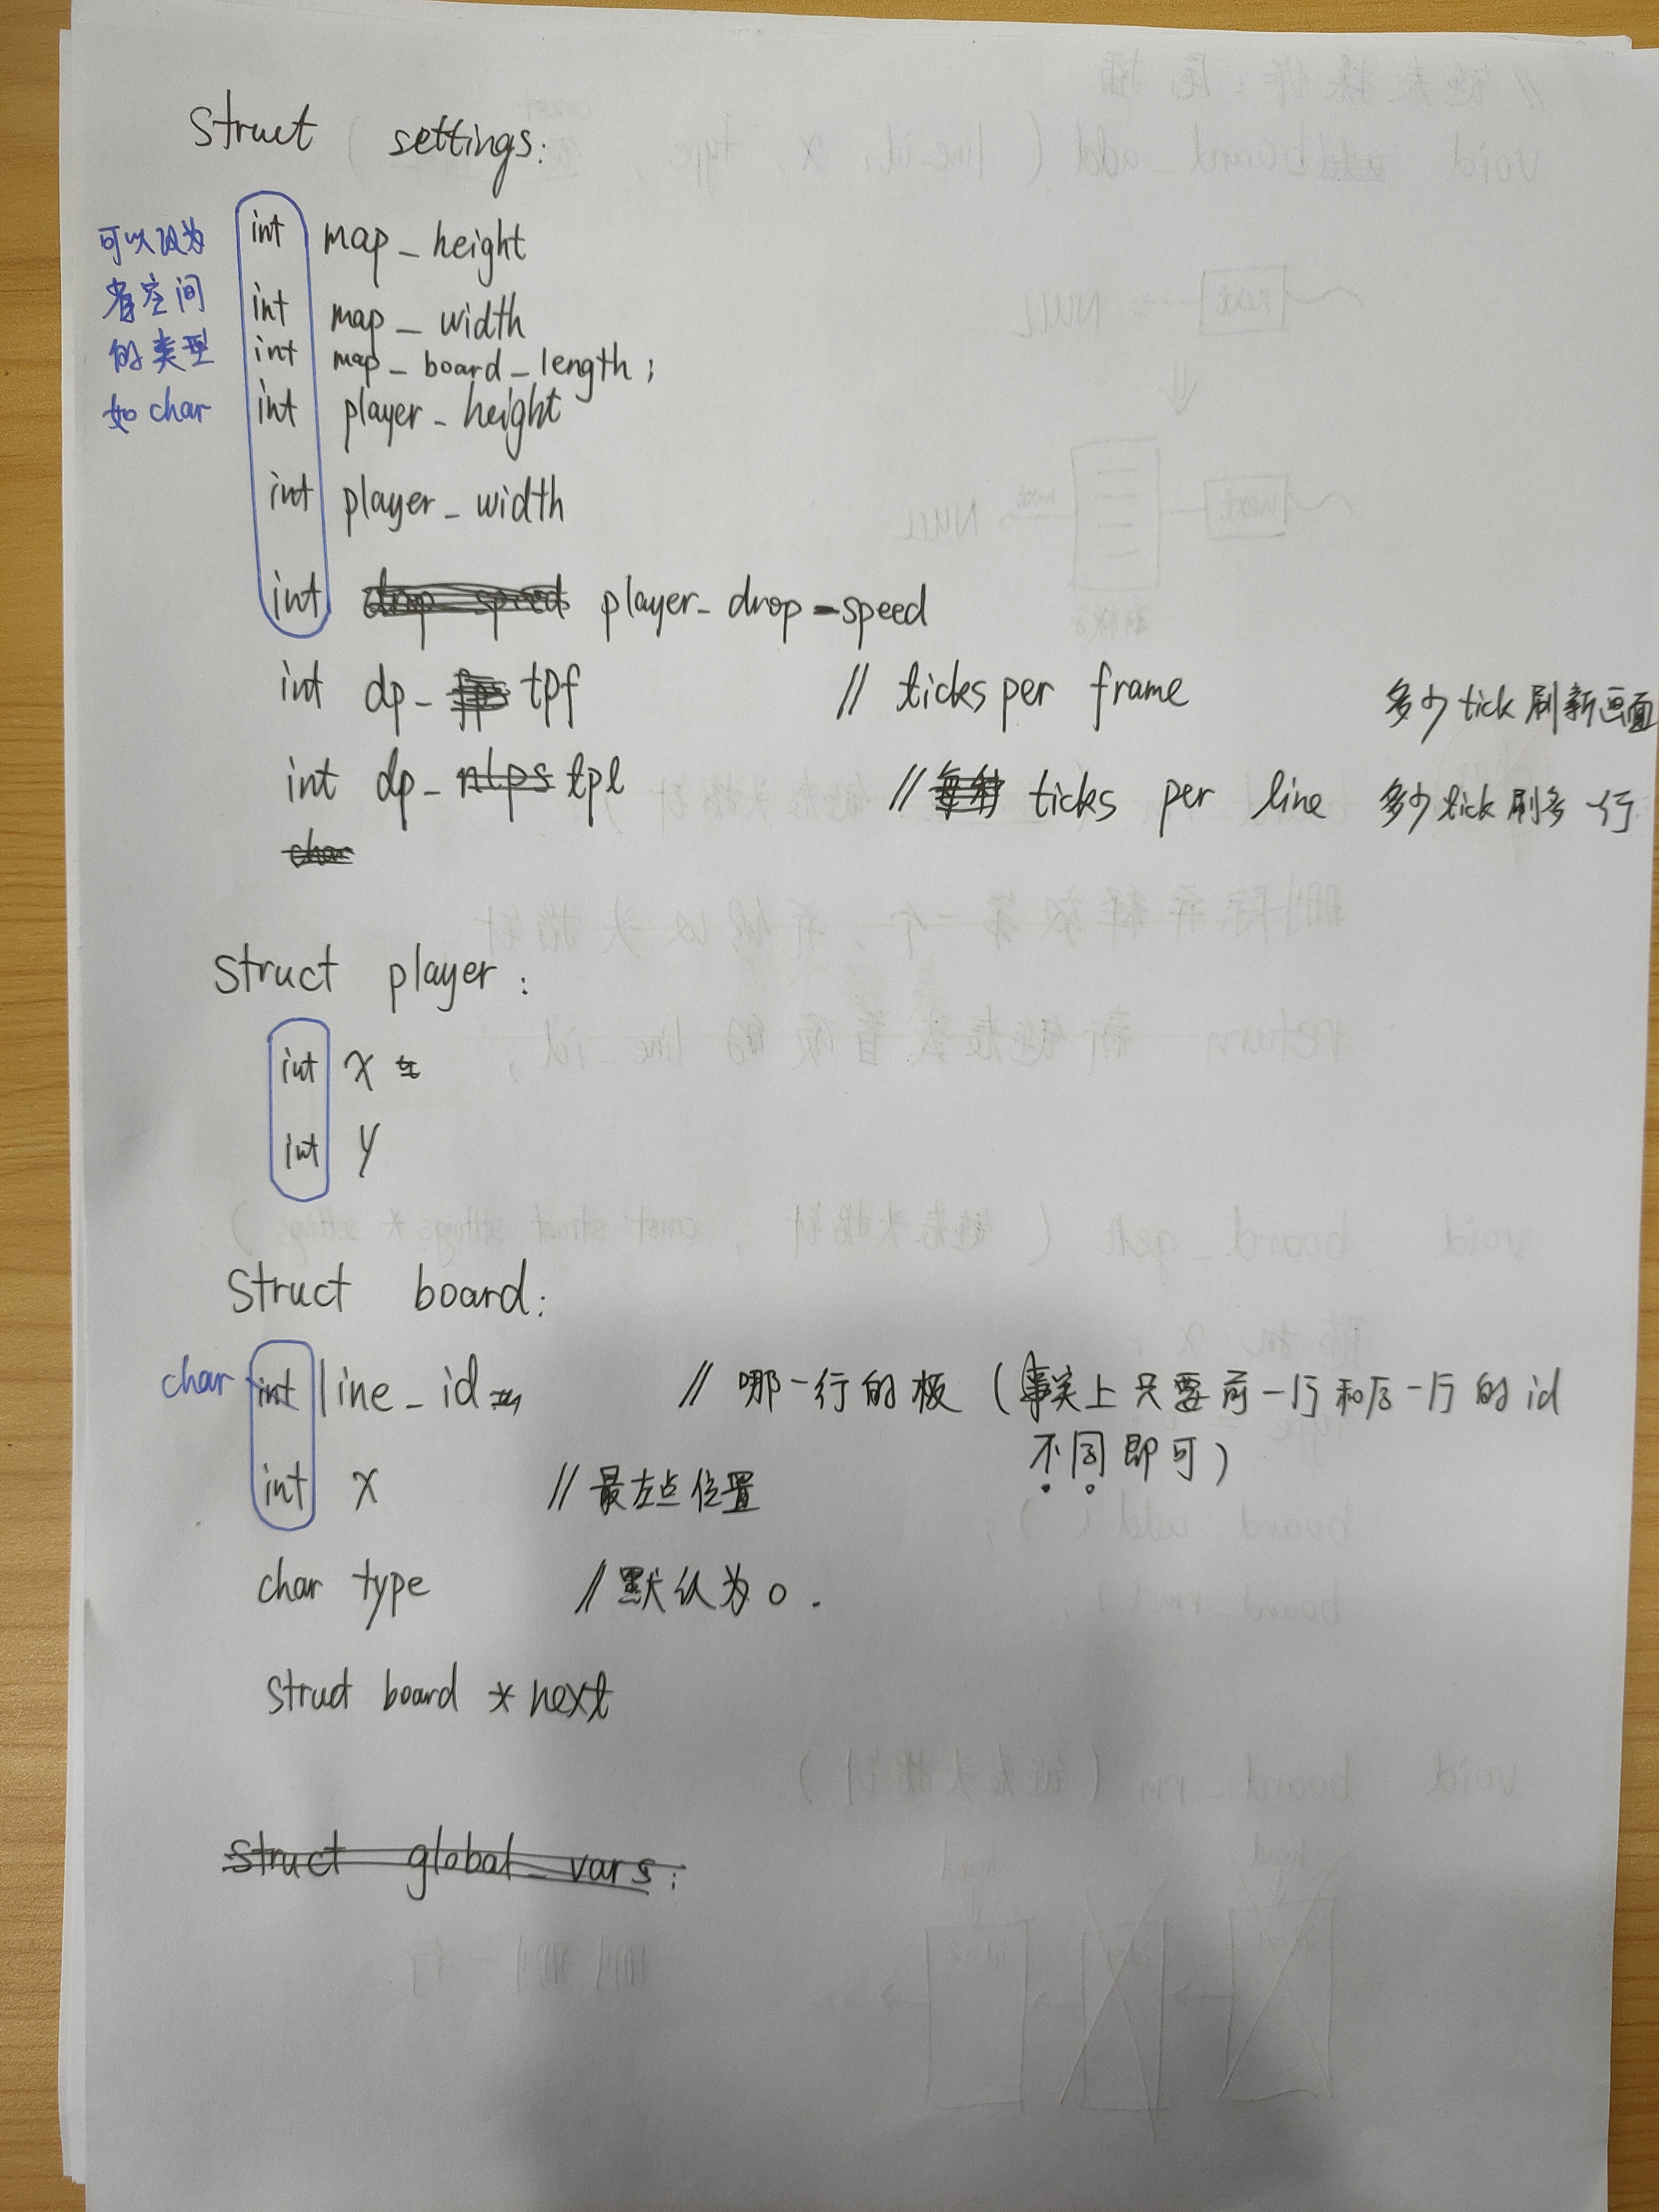 struct settings:
可以改为
省空间
的类型
如 char
int map_height
int map_width
int map_board_length;
int player_height
int player_width
int drop speed player_drop_speed
int dp_fps tpf // ticks per frame 多少 tick 刷新画面
int dp_nlps tpl // 每秒 ticks per line 多少 tick 刷多一行
char
struct player:
int x
int y
struct board:
char int line_id // 哪一行的板 (事实上只要前一行和后一行的 id
不同即可)
int x // 最左点位置
char type // 默认为 0.
struct board * next
struct global_vars: